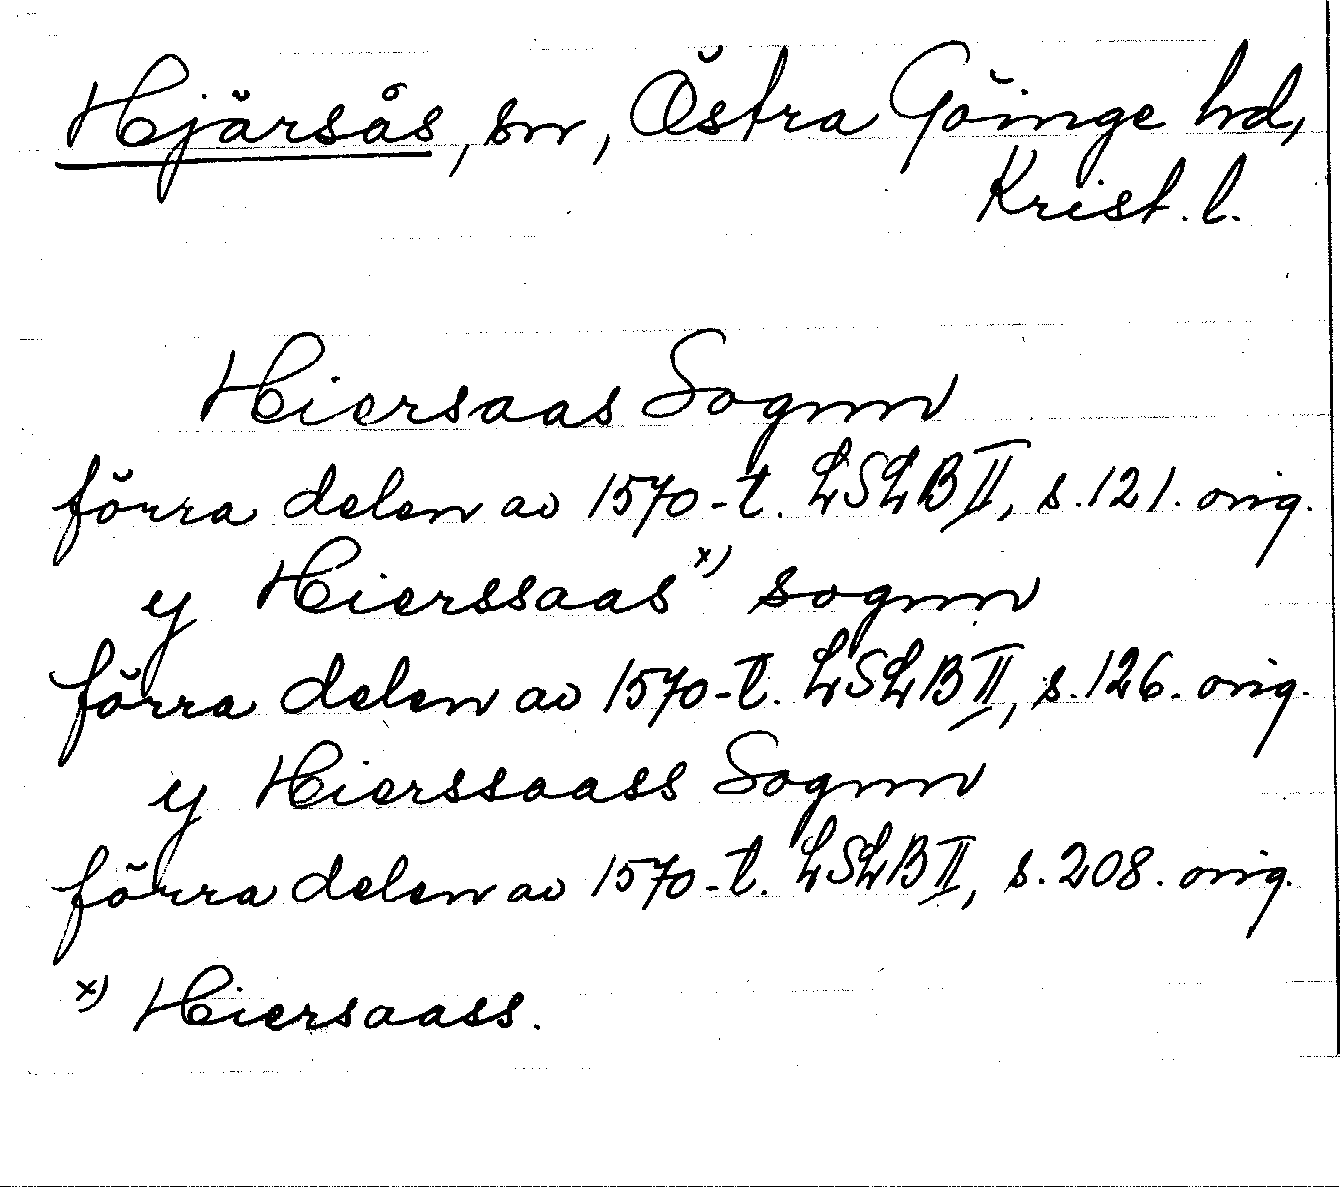 Hjärsås, sn, Östra Göinge hd,
Krist. l.
Hiersaas Sognn
förra delen av 1570-t. LSLB II, s. 121. orig.
y Hierssaas x) sognn
förra delen av 1570-t. LSLB II, s. 126. orig.
y Hierssaass Sognn
förra delen av 1570-t. LSLB II, s. 208. orig.
x) Hiersaass.